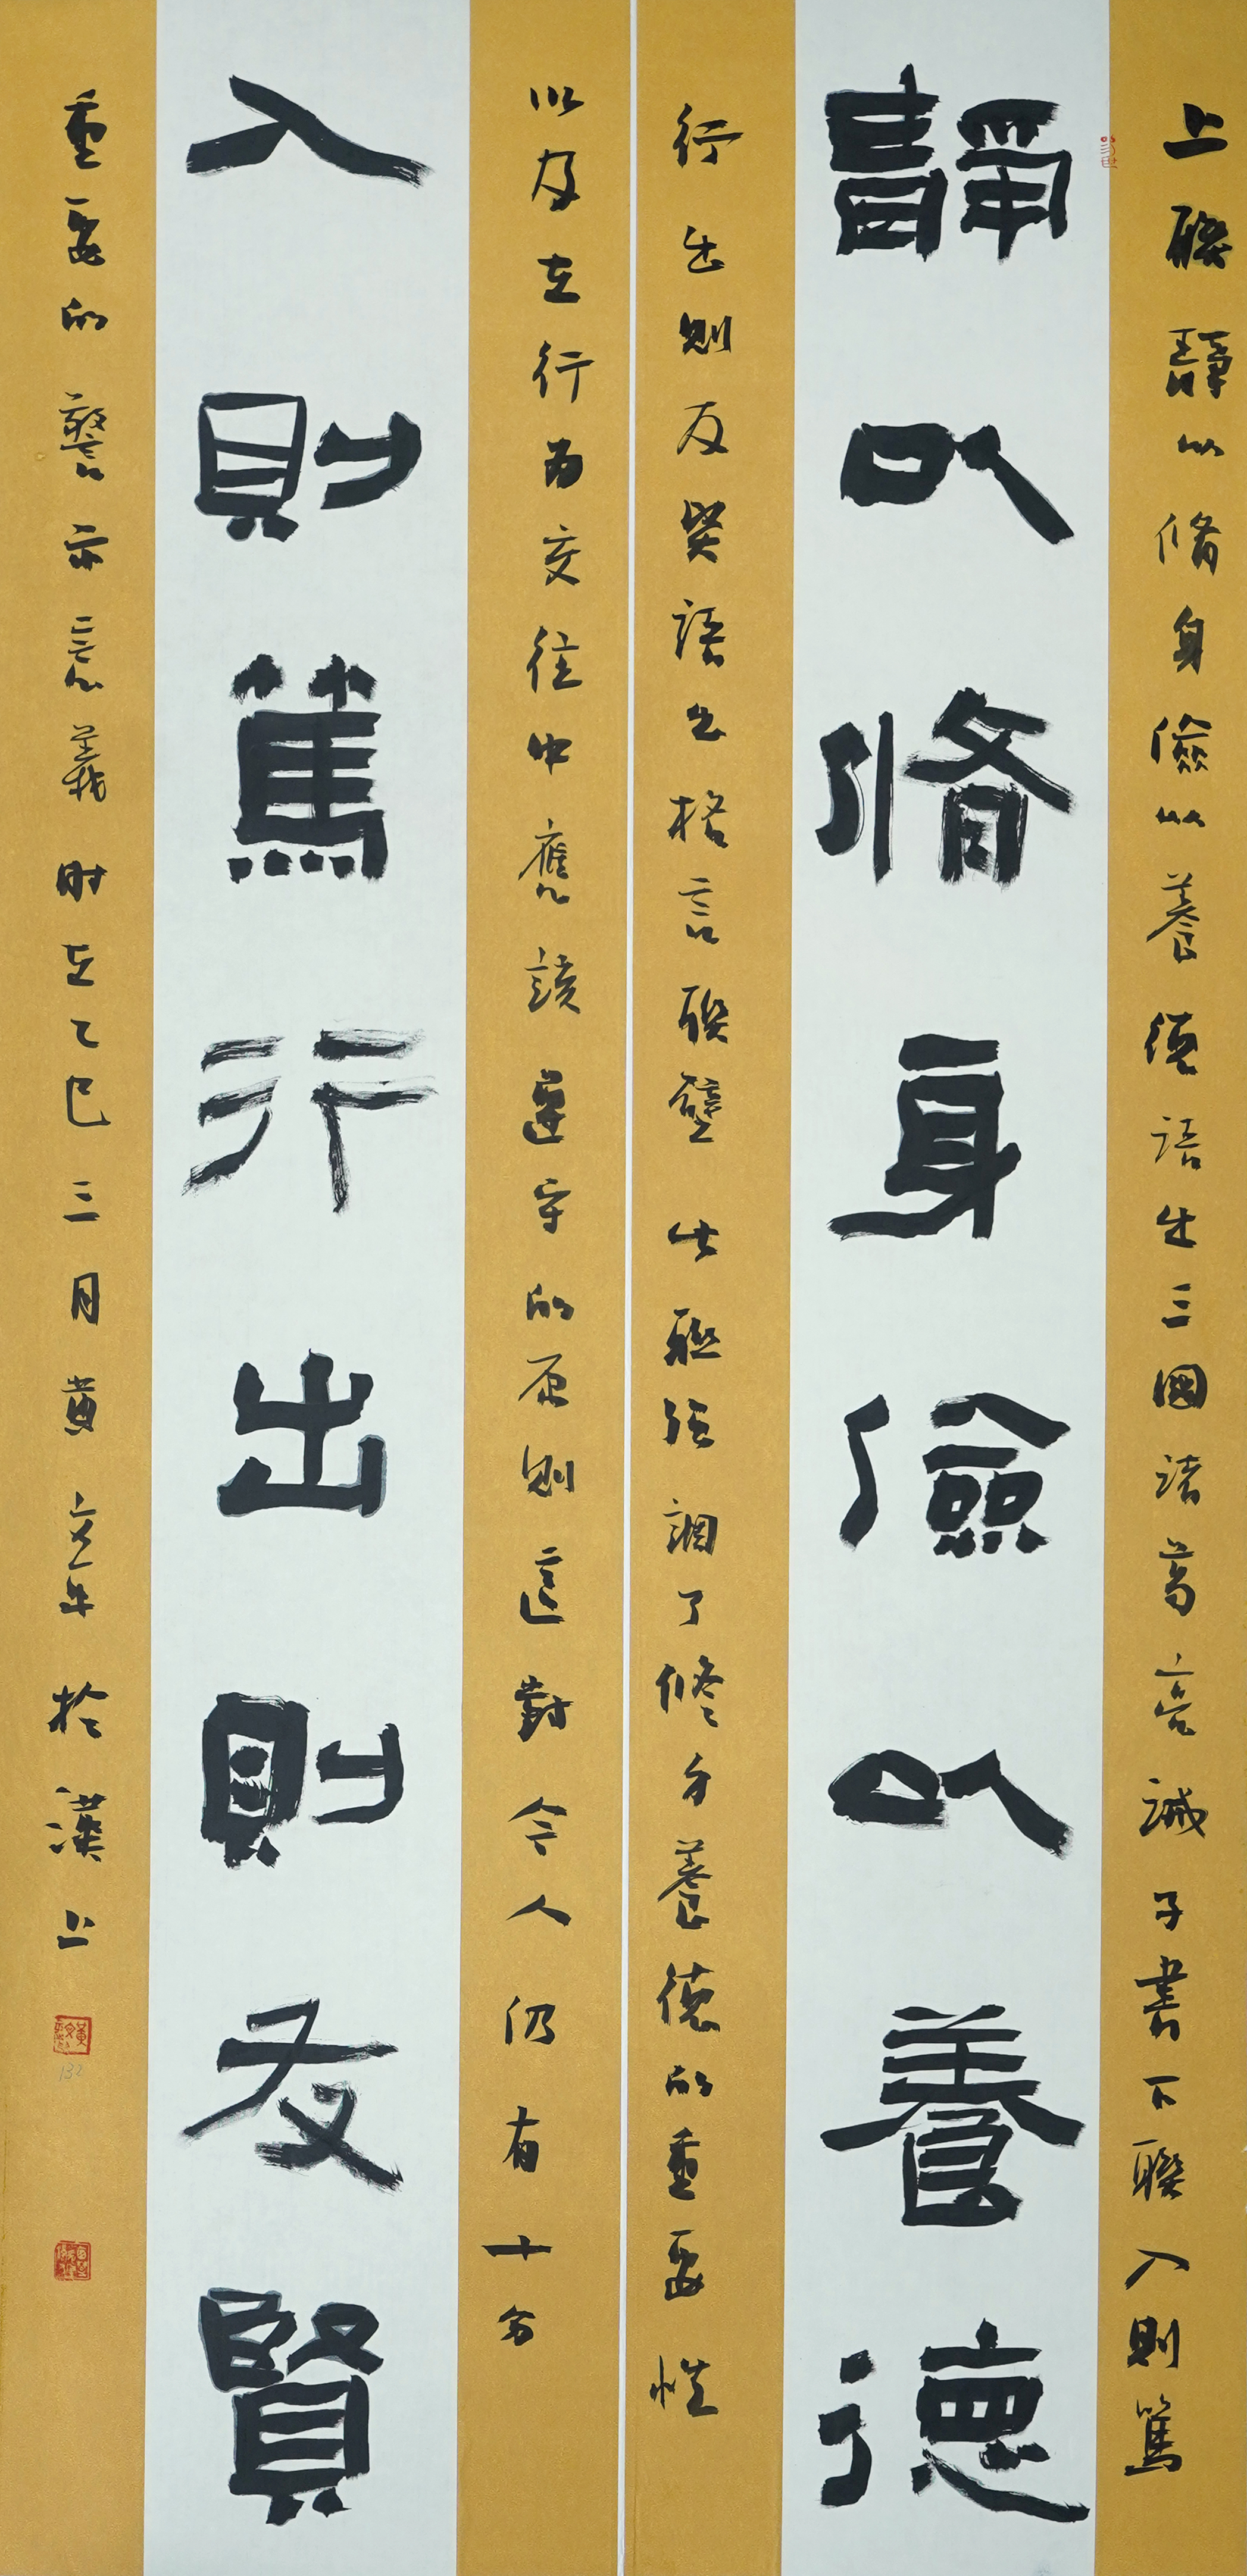 上聯靜以脩身儉以養德語出三國諸葛亮誡子書下聯入則篤
靜以脩身儉以養德
行出則友賢語出格言聯璧此聯强調了修身養德的重要性
以及在行為交往中應該遵守的原則這對今人仍有十分
入則篤行出則友賢
重要的警示意義時在乙巳三月黄文軍於漢上